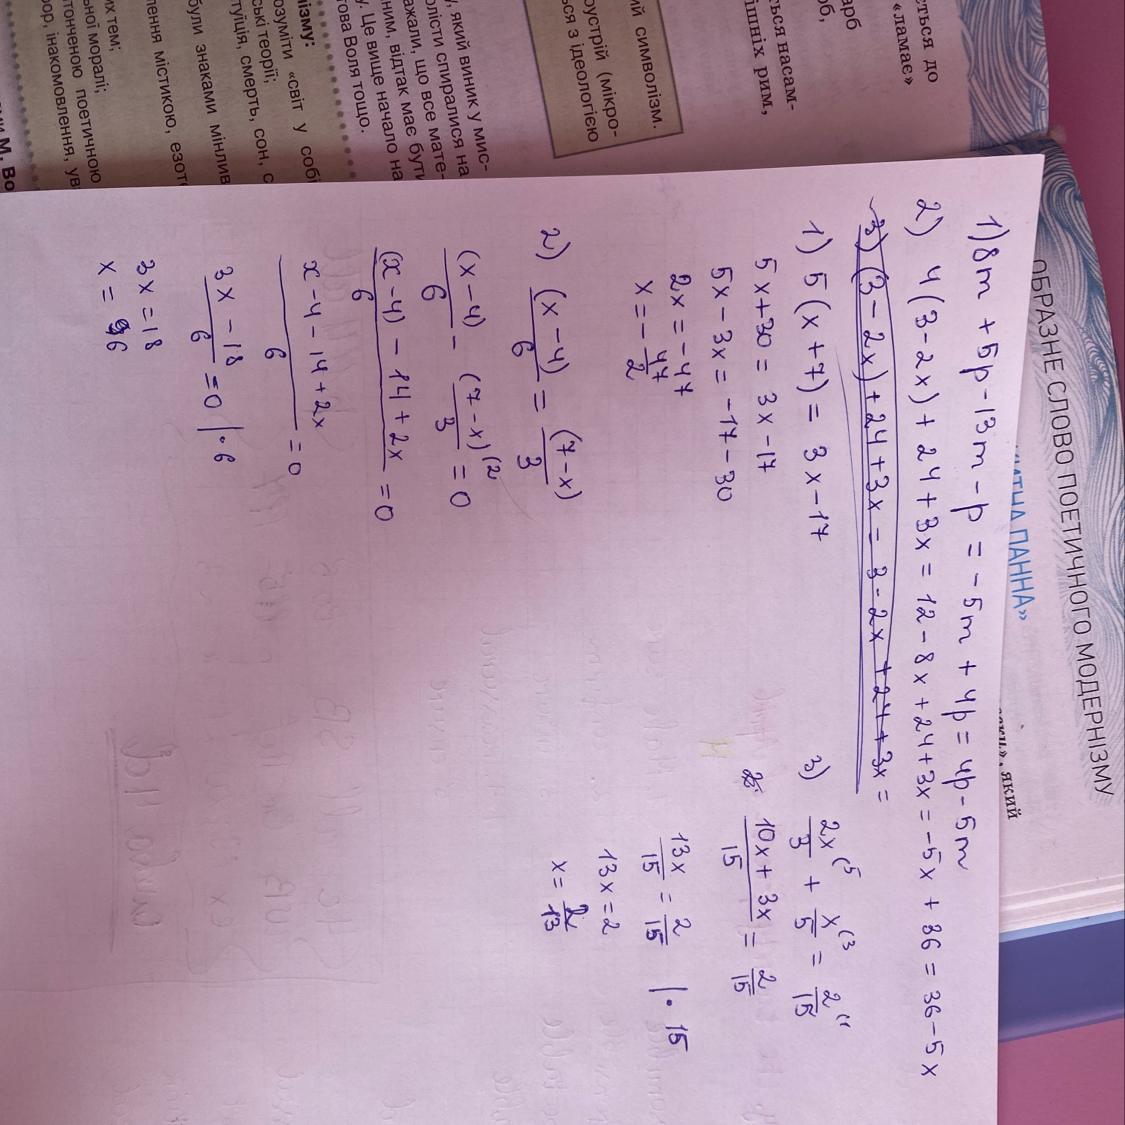 ОБРАЗНЕ СЛОВО ПОЕТИЧНОГО МОДЕРНІЗМУ
ПАННА»
який
1) 8m + 5p - 13m - p = - 5m + 4p = 4p - 5m
2) 4(3 - 2x) + 24 + 3x = 12 - 8x + 24 + 3x = -5x + 36 = 36 - 5x
3) (3 - 2x) + 24 + 3x = 3 - 2x + 24 + 3x =
1) 5(x + 7) = 3x - 17
5x + 30 = 3x - 17
5x - 3x = -17 - 30
2x = -47
x = - 47/2
2) (x - 4)/6 = (7 - x)/3
(x - 4)/6 - (7 - x)/3 (2 = 0
(x - 4) - 14 + 2x / 6 = 0
x - 4 - 14 + 2x / 6 = 0
3x - 18 / 6 = 0 | · 6
3x = 18
x = 6
3) 2x/3 (5 + x/5 (3 = 2/15 (1
10x + 3x / 15 = 2/15
13x/15 = 2/15 | · 15
13x = 2
x = 2/13
ється до
«ламає»
арб
ься насам-
ішніх рим,
ий символізм.
оустрій (мікро-
ься з ідеологією
у, який виник у мис-
олісти спиралися на
ажали, що все мате-
ним, відтак має бути
у. Це вище начало на
това Воля тощо.
нізму:
озуміти «світ у собі
ські теорії;
туїція, смерть, сон, с
були знаками мінлив
лення містикою, езот
их тем;
ьної моралі;
тонченою поетичною
ор, інакомовлення, ув